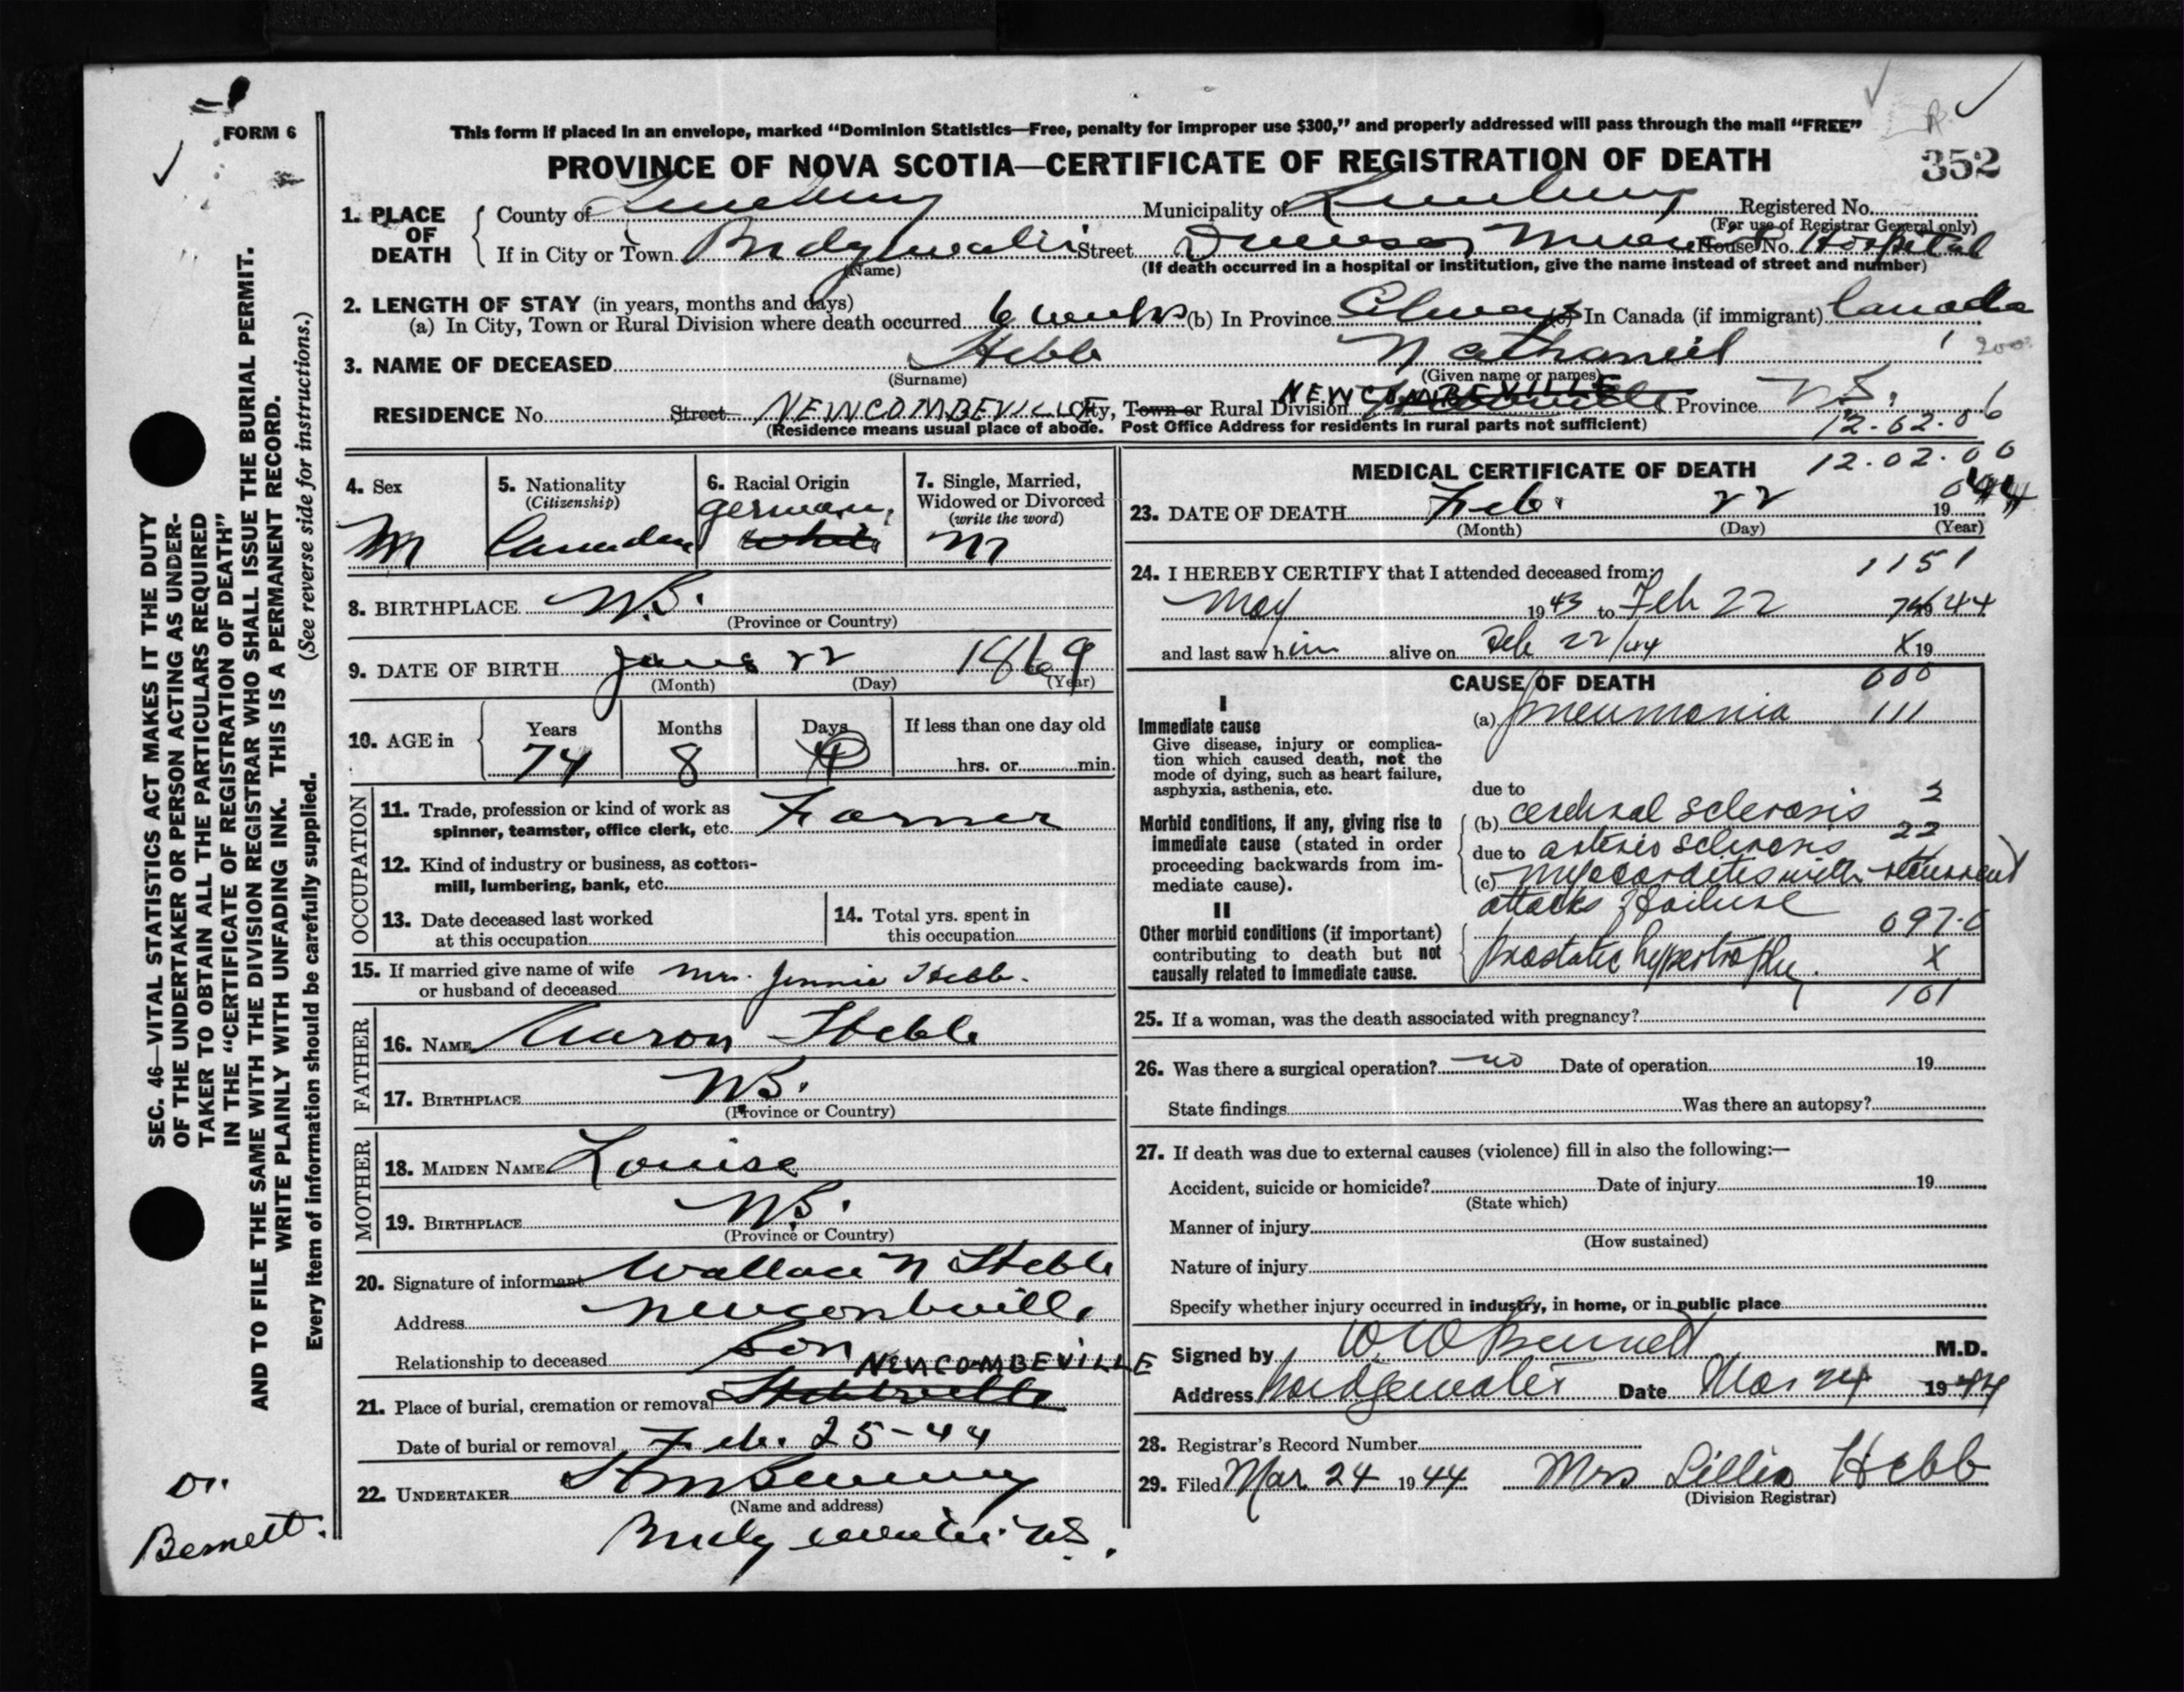 FORM 6
This form if placed in an envelope, marked “Dominion Statistics—Free, penalty for improper use $300,” and properly addressed will pass through the mail “FREE”
PROVINCE OF NOVA SCOTIA—CERTIFICATE OF REGISTRATION OF DEATH
352
1. PLACE OF DEATH
County of Lunenburg Municipality of Lunenburg Registered No.
(For use of Registrar General only)
If in City or Town Bridgewater Street Dawson Memorial House No. Hospital
(Name)
(If death occurred in a hospital or institution, give the name instead of street and number)
2. LENGTH OF STAY (in years, months and days)
(a) In City, Town or Rural Division where death occurred 6 weeks (b) In Province Always (c) In Canada (if immigrant) Canada
3. NAME OF DECEASED Hebb Nathaniel
(Surname) (Given name or names)
RESIDENCE No. Street NEWCOMBEVILLE City, Town or Rural Division NEWCOMBEVILLE Province N.S.
(Residence means usual place of abode. Post Office Address for residents in rural parts not sufficient)
12.62.06
12.02.00
4. Sex
M
5. Nationality
(Citizenship)
Canadian
6. Racial Origin
german
white
7. Single, Married,
Widowed or Divorced
(write the word)
M
8. BIRTHPLACE N.S.
(Province or Country)
9. DATE OF BIRTH June 22 1869
(Month) (Day) (Year)
10. AGE in
Years Months Days If less than one day old
74 8 hrs. or min.
OCCUPATION
11. Trade, profession or kind of work as
spinner, teamster, office clerk, etc. Farmer
12. Kind of industry or business, as cotton-
mill, lumbering, bank, etc.
13. Date deceased last worked
at this occupation
14. Total yrs. spent in
this occupation
15. If married give name of wife
or husband of deceased Mrs. Jennie Hebb.
FATHER
16. NAME Aaron Hebb
17. BIRTHPLACE N.S.
(Province or Country)
MOTHER
18. MAIDEN NAME Louise
19. BIRTHPLACE N.S.
(Province or Country)
20. Signature of informant Wallace N Hebb
Address Newcombville
Relationship to deceased Son
NEWCOMBEVILLE
21. Place of burial, cremation or removal
Date of burial or removal Feb. 25-44
22. UNDERTAKER
(Name and address)
Bridgewater N.S.
MEDICAL CERTIFICATE OF DEATH
23. DATE OF DEATH Feb. 22 19 44
(Month) (Day) (Year)
24. I HEREBY CERTIFY that I attended deceased from: 1151
May 1943 to Feb 22 44
and last saw him alive on Feb 22/44 X 19
CAUSE OF DEATH 000
I
Immediate cause
Give disease, injury or complica-
tion which caused death, not the
mode of dying, such as heart failure,
asphyxia, asthenia, etc.
(a) pneumonia 111
due to
Morbid conditions, if any, giving rise to
immediate cause (stated in order
proceeding backwards from im-
mediate cause).
(b) cerebral sclerosis
due to arterio sclerosis
(c) Myocarditis with recurrent
attacks of failure
II
Other morbid conditions (if important)
contributing to death but not
causally related to immediate cause.
097.0
prostatic hypertrophy. X
101
25. If a woman, was the death associated with pregnancy?
26. Was there a surgical operation? no Date of operation 19
State findings Was there an autopsy?
27. If death was due to external causes (violence) fill in also the following:—
Accident, suicide or homicide? Date of injury 19
(State which)
Manner of injury
(How sustained)
Nature of injury
Specify whether injury occurred in industry, in home, or in public place
Signed by W W Bennett M.D.
Address Bridgewater Date Mar 24 1944
28. Registrar's Record Number
29. Filed Mar. 24 1944 Mrs Lillia Hebb
(Division Registrar)
SEC. 46—VITAL STATISTICS ACT MAKES IT THE DUTY
OF THE UNDERTAKER OR PERSON ACTING AS UNDER-
TAKER TO OBTAIN ALL THE PARTICULARS REQUIRED
IN THE “CERTIFICATE OF REGISTRATION OF DEATH”
AND TO FILE THE SAME WITH THE DIVISION REGISTRAR WHO SHALL ISSUE THE BURIAL PERMIT.
WRITE PLAINLY WITH UNFADING INK. THIS IS A PERMANENT RECORD.
Every item of information should be carefully supplied. (See reverse side for instructions.)
Dr.
Bennett.